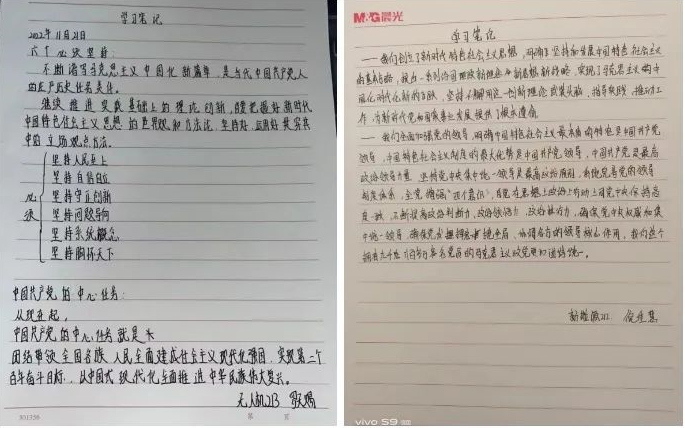 学习笔记
2022年11月21日
六个必须坚持:
不断谱写马克思主义中国化新篇章,是当代中国共产党人
的庄严历史责任。
继续推进实践基础上的理论创新,首要把握好新时代
中国特色社会主义思想的世界观和方法论,坚持好、运用好贯穿其
中的立场观点方法。
必须
坚持人民至上
坚持自信自立
坚持守正创新
坚持问题导向
坚持系统概念
坚持胸怀天下
中国共产党的中心任务:
从现在起,
中国共产党的中心任务就是
团结带领全国各族人民全面建成社会主义现代化强国、实现第二个
百年奋斗目标,以中国式现代化全面推进中华民族伟大复兴。
无人机2B
M&G晨光
学习笔记
一我们创立了新时代特色社会主义思想,明确坚持和发展中国特色社会主义
的基本方略,提出一系列治国理政新理念新思想新战略,实现了马克思主义中
国化时代化新的飞跃,坚持不懈用这一创新理论武装头脑、指导实践、推动工
作,为新时代党和国家事业发展提供了根本遵循
一我们全面加强党的领导,明确中国特色社会主义最本质的特征是中国共产党
领导,中国特色社会主义制度的最大优势是中国共产党领导,中国共产党是最高
政治领导力量,坚持党中央集中统一领导是最高政治原则,系统完善党的领导
制度体系,全党增强“四个意识”,自觉在思想上政治上行动上同党中央保持高
度一致,不断提高政治判断力、政治领悟力、政治执行力,确保党中央权威和集
中统一领导,确保党发挥总揽全局、协调各方的领导核心作用,我们这个
拥有九千六百多万名党员的马克思主义政党更加团结统一。
vivo S9